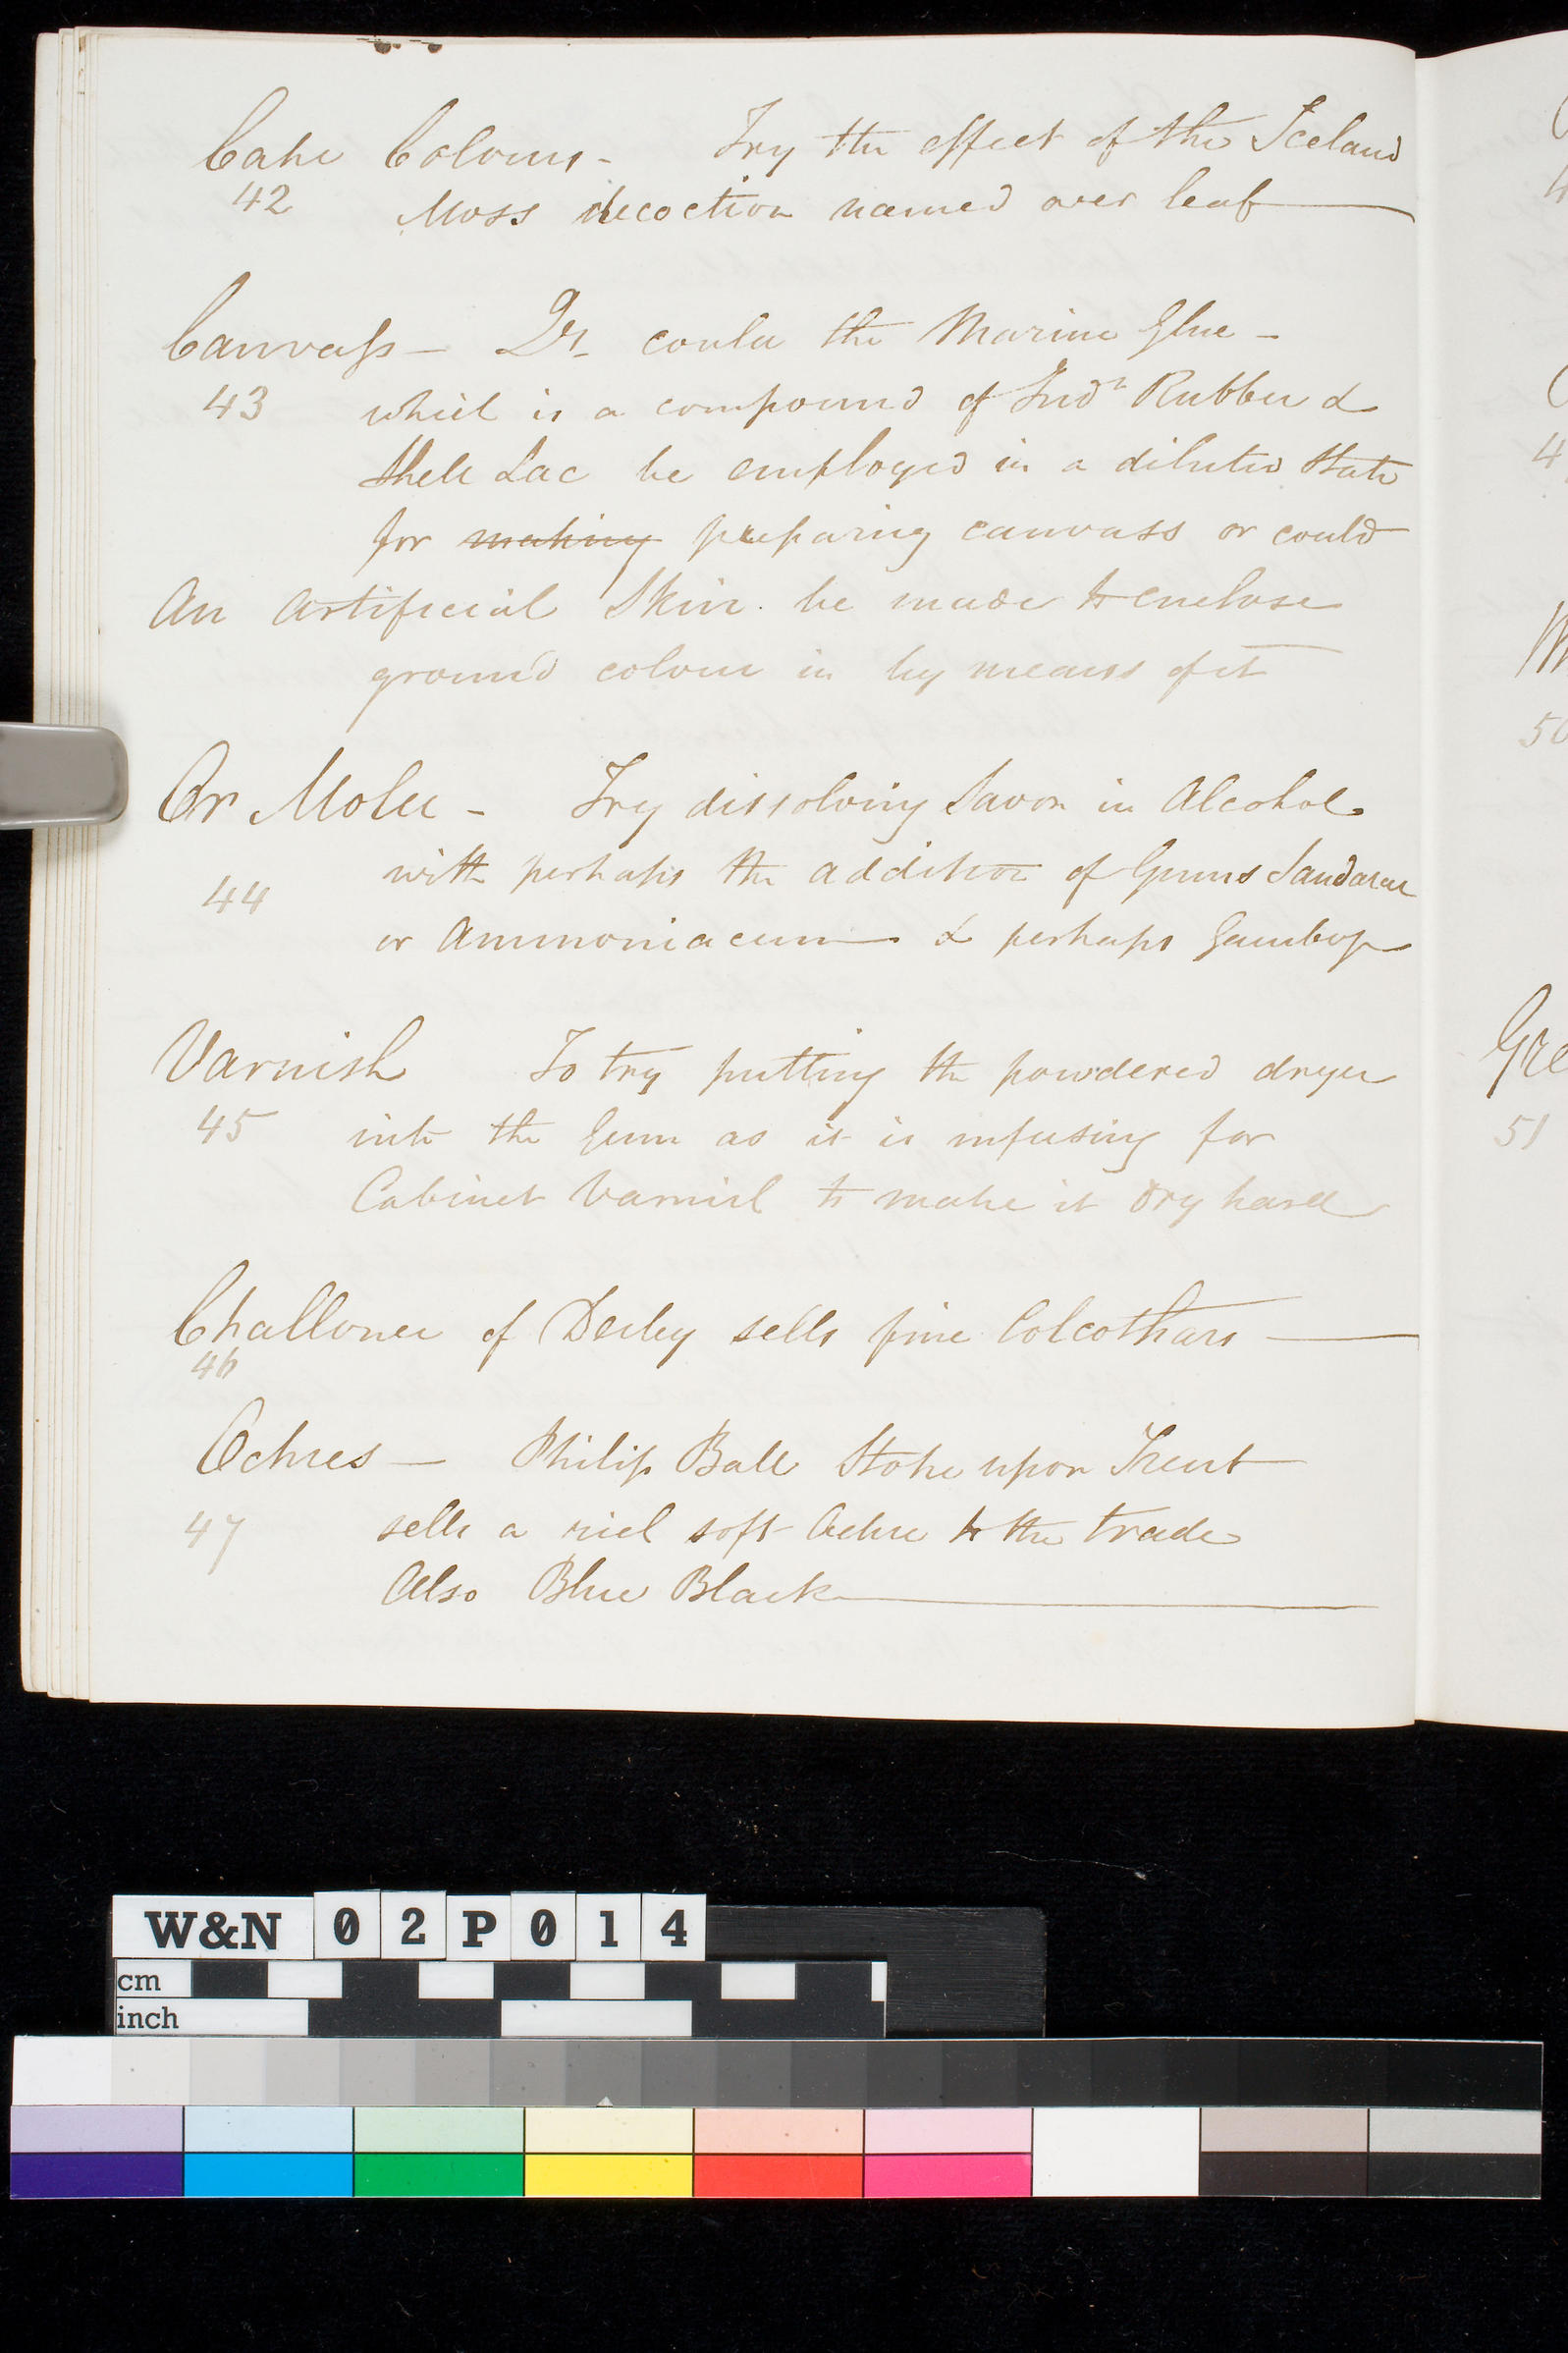 Cake Colours - Try the effect of the Iceland
42 Moss decoction named over leaf
Canvass - Qy. could the Marine Glue -
43 which is a compound of Indn Rubber &
Shell Lac be employed in a diluted State
for making preparing canvass or could
An Artificial Skin be made to enclose
ground colour in by means of it
Or Molu - Try dissolving Savon in Alcohol
with perhaps the addition of Gums Sandarac
44
or Ammoniacum & perhaps Gamboge
Varnish To try putting the powdered dryer
45 into the Gum as it is infusing for
Cabinet Varnish to make it dry hard
Challoner of Derby sells fine Colcothars
46
Ochres - Philip Ball Stoke upon Trent
47 sells a rich soft Ochre to the trade
Also Blue Black
4
4
50
Gre
51
W&N 02P014
cm
inch